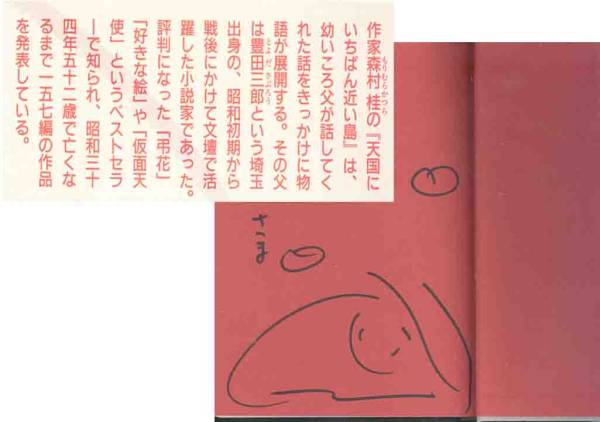 作家森村桂の『天国に
もりむらかつら
いちばん近い島』は、
幼いころ父が話してく
れた話をきっかけに物
語が展開する。その父
は豊田三郎という埼玉
とよださぶろう
出身の、昭和初期から
戦後にかけて文壇で活
躍した小説家であった。
評判になった「弔花」
「好きな絵」や「仮面天
使」というベストセラ
ーで知られ、昭和三十
四年五十二歳で亡くな
るまで一五七編の作品
を発表している。
さま